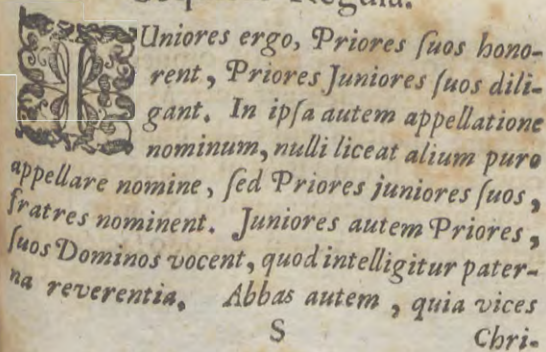 Regula.
IUniores ergo, Priores ſuos hono-
rent, Priores Juniores ſuos dili-
gant. In ipſa autem appellatione
nominum, nulli liceat alium puro
appellare nomine, ſed Priores juniores ſuos,
fratres nominent. Juniores autem Priores,
ſuos Dominos vocent, quod intelligitur pater-
na reverentia. Abbas autem, quia vices
S Chri-